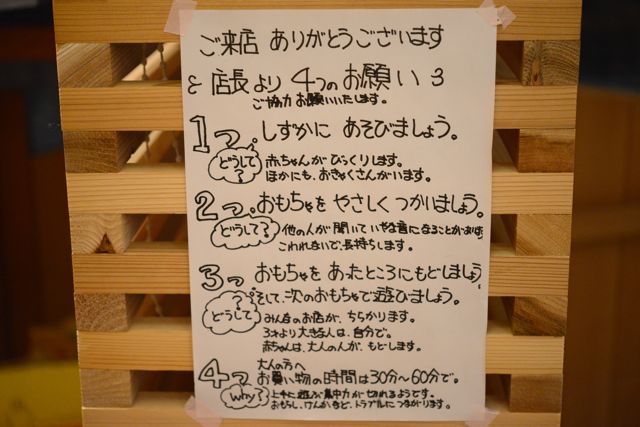 ご来店 ありがとうございます
店長より 4つのお願い
ご協力 お願いいたします。
1つ。しずかに あそびましょう。
どうして？
赤ちゃんが びっくりします。
ほかにも、おきゃくさんがいます。
2つ。おもちゃを やさしく つかいましょう。
どうして？
他の人が 聞いて いやな音に なることがあります。
こわれないで、長持ちします。
3つ おもちゃを あったところにもどしましょう
そして、次のおもちゃで遊びましょう。
どうして？
みんなのお店が、ちらかります。
3才より大きな人は、自分で。
赤ちゃんは、大人の人が、もどします。
4つ
大人の方へ
お買い物の時間は30分〜60分で。
why？
上手に遊ぶ集中力が切れるようです。
おもらし、けんかなど、トラブルにつながります。